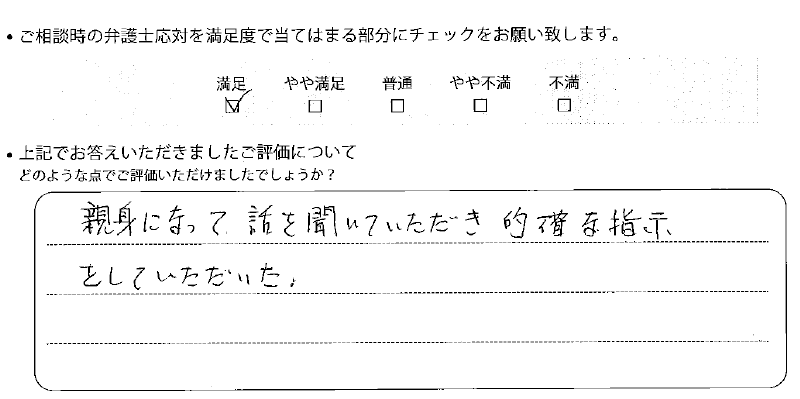 • ご相談時の弁護士応対を満足度で当てはまる部分にチェックをお願い致します。
満足 やや満足 普通 やや不満 不満
☑ □ □ □ □
• 上記でお答えいただきましたご評価について
どのような点でご評価いただけましたでしょうか？
親身になって話を聞いていただき的確な指示
をしていただいた。